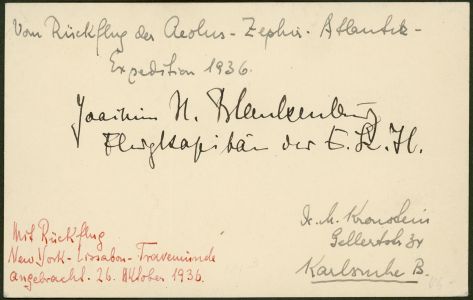 Vom Rückflug der Aeolus-Zephir-Atlantik-
Expedition 1936.
Joachim H. Blankenburg
Flugkapitän der D.L.H.
Mit Rückflug
New York-Lissabon-Travemünde
angebracht. 26. Oktober 1936.
Dr. M. Kronstein
Karlsruhe B.